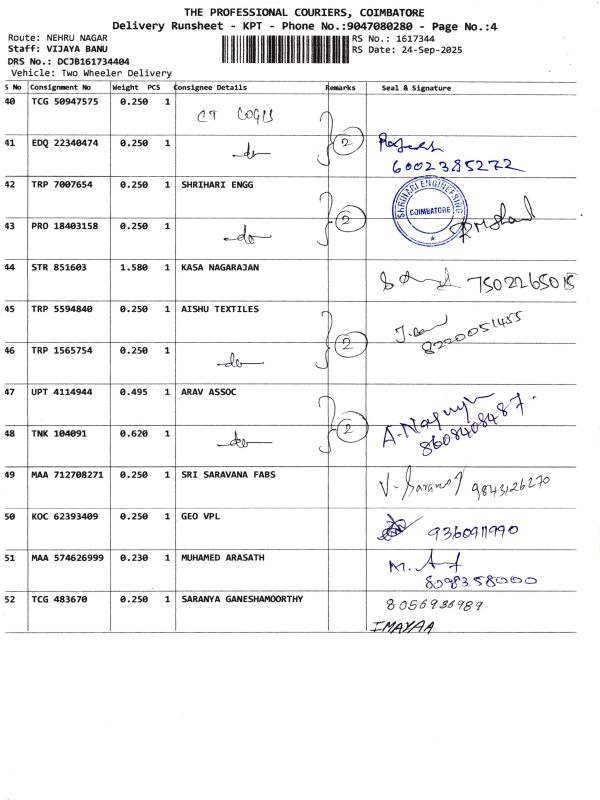 THE PROFESSIONAL COURIERS, COIMBATORE
Delivery Runsheet - KPT - Phone No.:9047080280 - Page No.:4
Route: NEHRU NAGAR RS No.: 1617344
Staff: VIJAYA BANU RS Date: 24-Sep-2025
DRS No.: DCJB161734404
Vehicle: Two Wheeler Delivery
S No Consignment No Weight PCS Consignee Details Remarks Seal & Signature
40 TCG 50947575 0.250 1 CT
41 EDQ 22340474 0.250 1 -do- 2
6002385272
42 TRP 7007654 0.250 1 SHRIHARI ENGG
SHRIHARI ENGINEERING COIMBATORE
43 PRO 18403158 0.250 1 -do- 2
44 STR 851603 1.580 1 KASA NAGARAJAN 7502265015
45 TRP 5594840 0.250 1 AISHU TEXTILES
8220051455
46 TRP 1565754 0.250 1 -do- 2
47 UPT 4114944 0.495 1 ARAV ASSOC
8608408487.
48 TNK 104091 0.620 1 -do- 2
49 MAA 712708271 0.250 1 SRI SARAVANA FABS 9843126270
50 KOC 62393409 0.250 1 GEO VPL 9360911990
51 MAA 574626999 0.230 1 MUHAMED ARASATH
8098358000
52 TCG 483670 0.250 1 SARANYA GANESHAMOORTHY 8056936989
IMAYAA